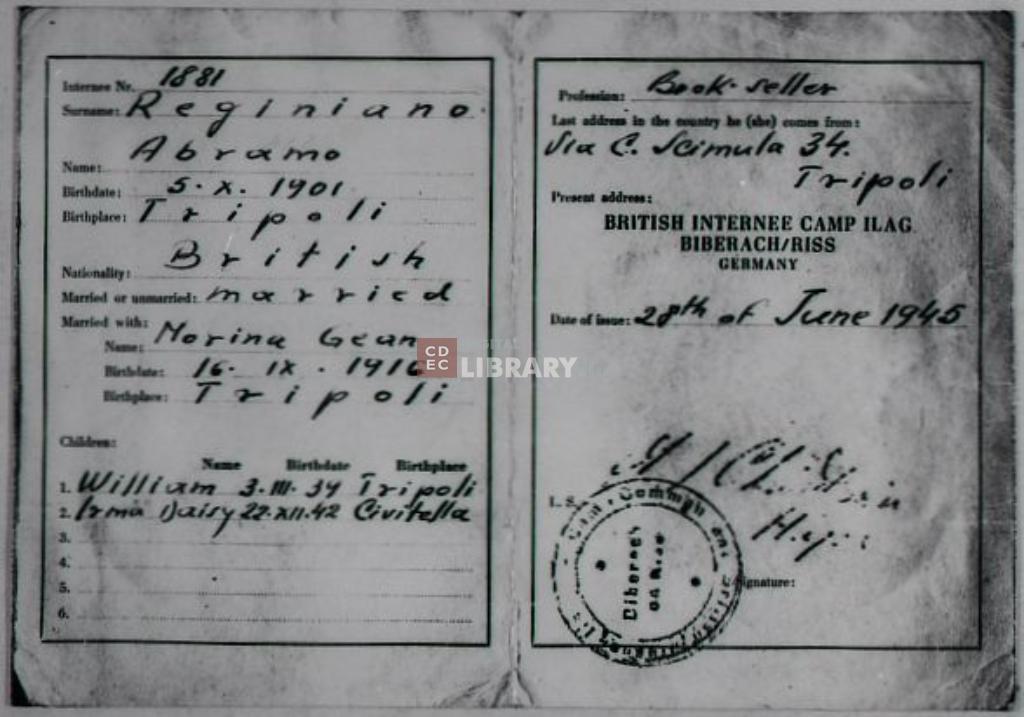 Internee Nr. 1881
Surname: Reginiano
Name: Abramo
Birthdate: 5. X. 1901
Birthplace: Tripoli
Nationality: British
Married or unmarried: married
Married with:
Name: Morina Gean
Birthdate: 16. IX. 1916
Birthplace: Tripoli
Children:
Name Birthdate Birthplace
1. William 3.III.34 Tripoli
2. Irma Daisy 22.XII.42 Civitella
3.
4.
5.
6.
Profession: Book-seller
Last address in the country he (she) comes from:
Via C. Scimula 34.
Tripoli
Present address:
BRITISH INTERNEE CAMP ILAG
BIBERACH/RISS
GERMANY
Date of issue: 28th of June 1945
L. S.
Camp
Biberach
Signature:
CDEC
DIGITAL
LIBRARY